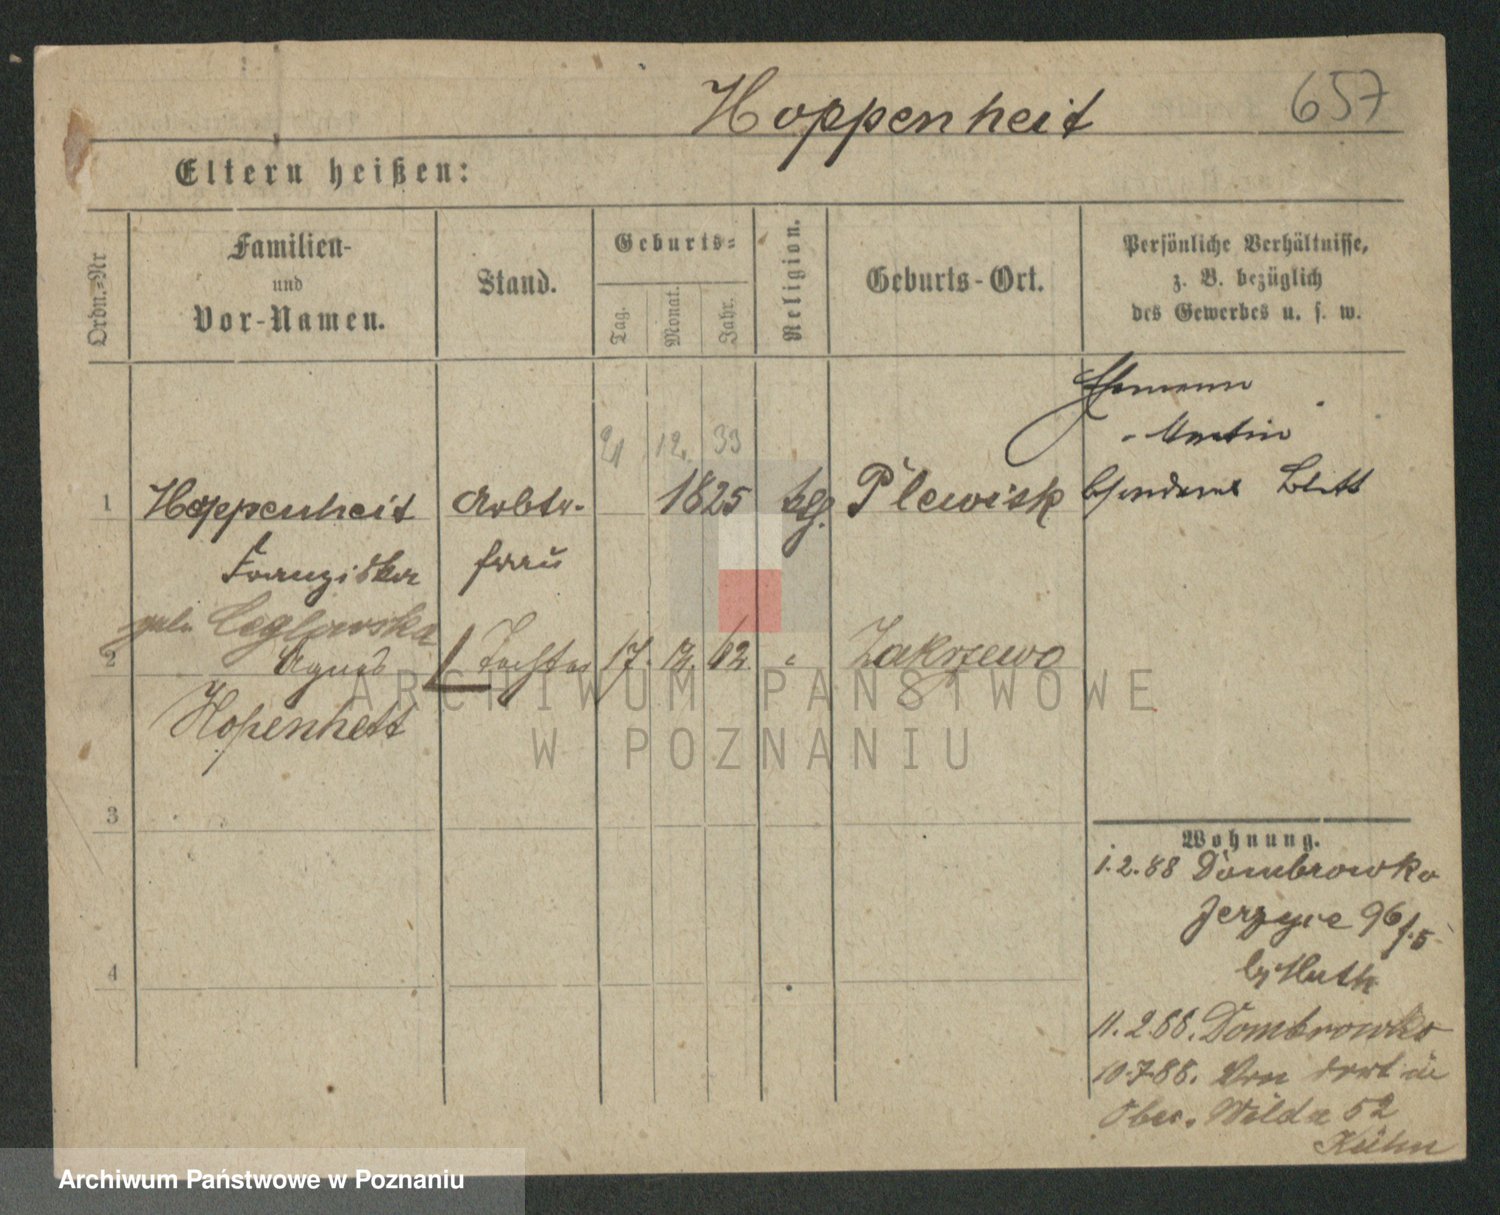 Hoppenheit 657
Eltern heißen:
Ordn.-Nr
Familien-
und
Vor-Namen.
Stand.
Geburts-
Tag.
Monat.
Jahr.
Religion.
Geburts-Ort.
Persönliche Verhältnisse,
z. B. bezüglich
des Gewerbes u. s. w.
Ehemann
Martin
besonderes Blatt
21 12. 33
1 Hoppenheit Arbtr- 1825 ktg. Plewisk
Franziska frau
geb. Ceglowska
2 Agnes Tochter 17. 12. 62 " Zakrzewo
Hopenheit
3
4
Wohnung.
1.2.88 Dombrowko
Jerzyce 96 f. 5
by Huth
11.2.88. Dombrowko
10.7.88. Von dort in
Ober. Wilda 52
Kühn
ARCHIWUM PAŃSTWOWE
W POZNANIU
Archiwum Państwowe w Poznaniu